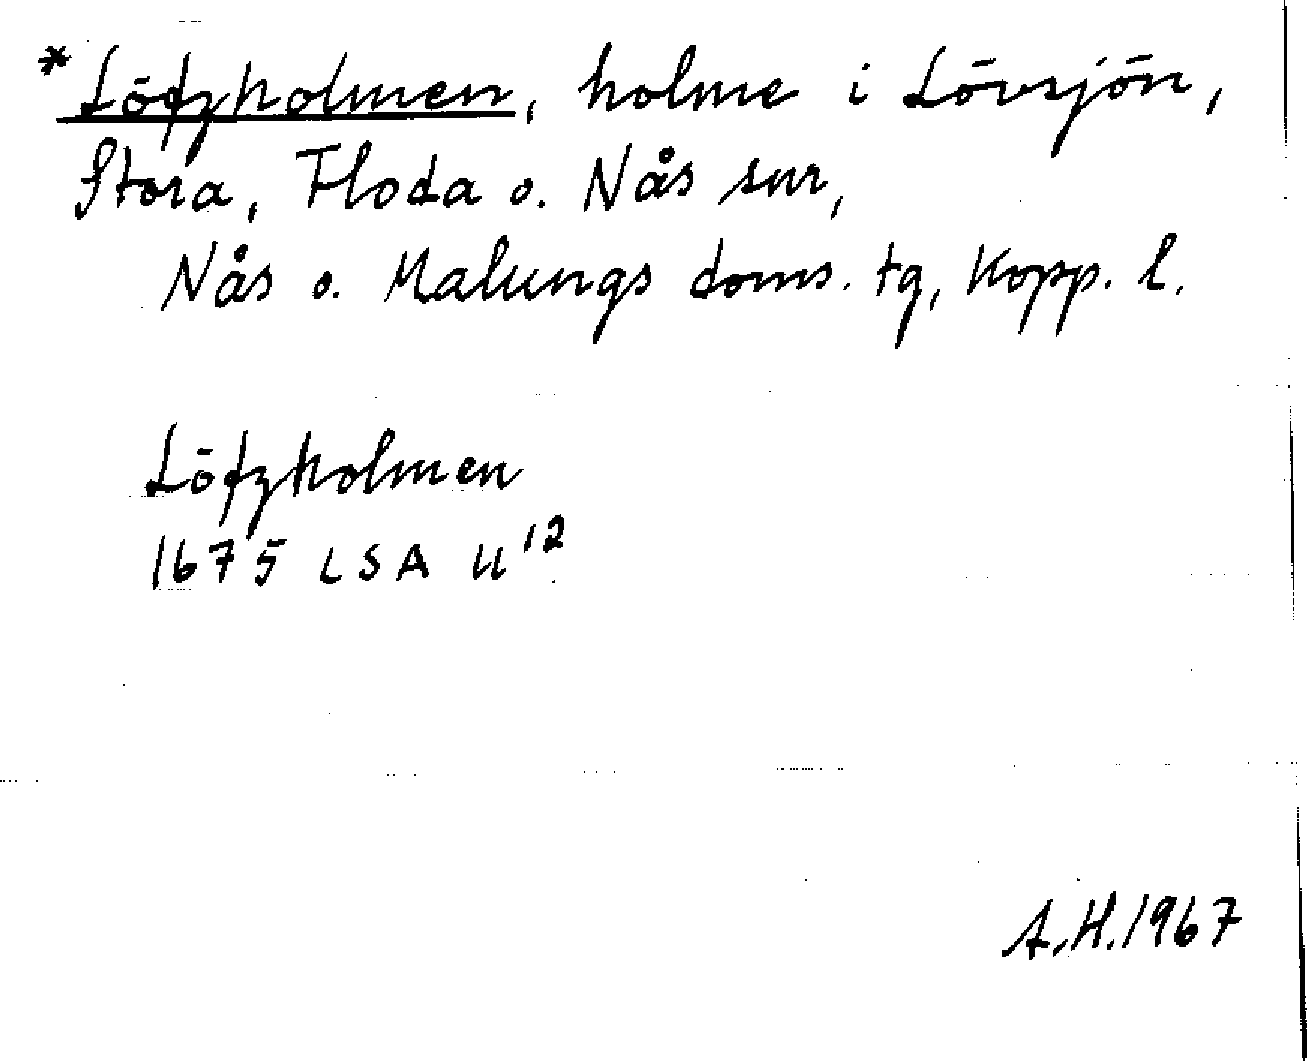 *Löfzholmen, holme i Lövsjön,
Stora, Floda o. Nås snr,
Nås o. Malungs doms. tg, Kopp. l.
Löfzholmen
1675 LSA U12
A.H.1967